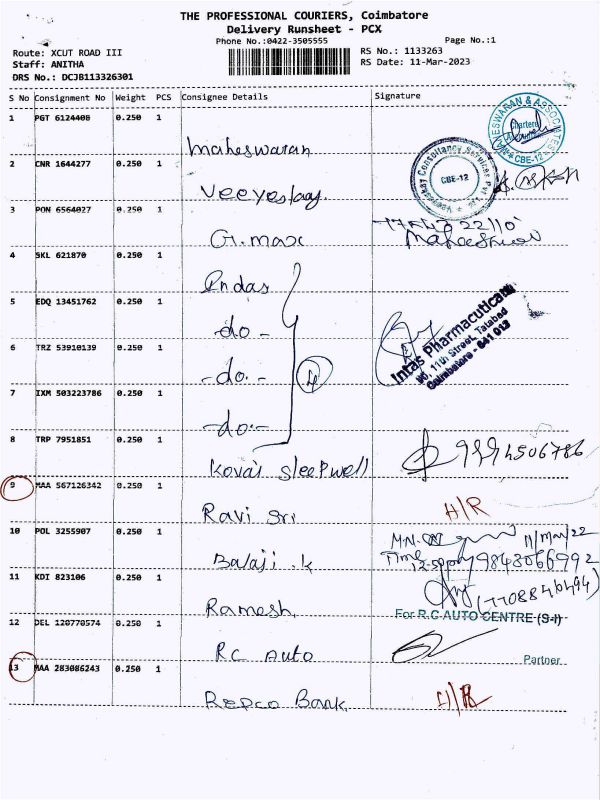 THE PROFESSIONAL COURIERS, Coimbatore
Delivery Runsheet - PCX
Phone No.:0422-3505555
Page No.:1
Route: XCUT ROAD III
RS No.: 1133263
Staff: ANITHA
RS Date: 11-Mar-2023
DRS No.: DCJB113326301
S No Consignment No Weight PCS Consignee Details Signature
1 PGT 6124408 0.250 1
Maheswaran
MAHESWARAN & ASSOCIATES
Chartered
CBE-12
2 CNR 1644277 0.250 1
Veeyeskay
Veeyeskay Consultancy Services Pvt. Ltd.
CBE-12
3 PON 6564027 0.250 1
G.max
Maheeshwar
4 SKL 621870 0.250 1
Indas
5 EDQ 13451762 0.250 1
-do-
6 TRZ 53910139 0.250 1
-do-
4
Intas Pharmaceuticals
90, 11th Street, Tatabad
Coimbatore - 641 012
7 IXM 503223786 0.250 1
-do-
8 TRP 7951851 0.250 1
Kovai Sleepwell
9994506786
9 MAA 567126342 0.250 1
Ravi Sri
H/R
10 POL 3255907 0.250 1
Balaji .k
11/Mar/22
Time
9843066992
11 KDI 823106 0.250 1
Ramesh
(7708846494)
For R.C AUTO CENTRE (S-I)
12 DEL 120770574 0.250 1
RC Auto
Partner
13 MAA 283086243 0.250 1
Repco Bank
H/R